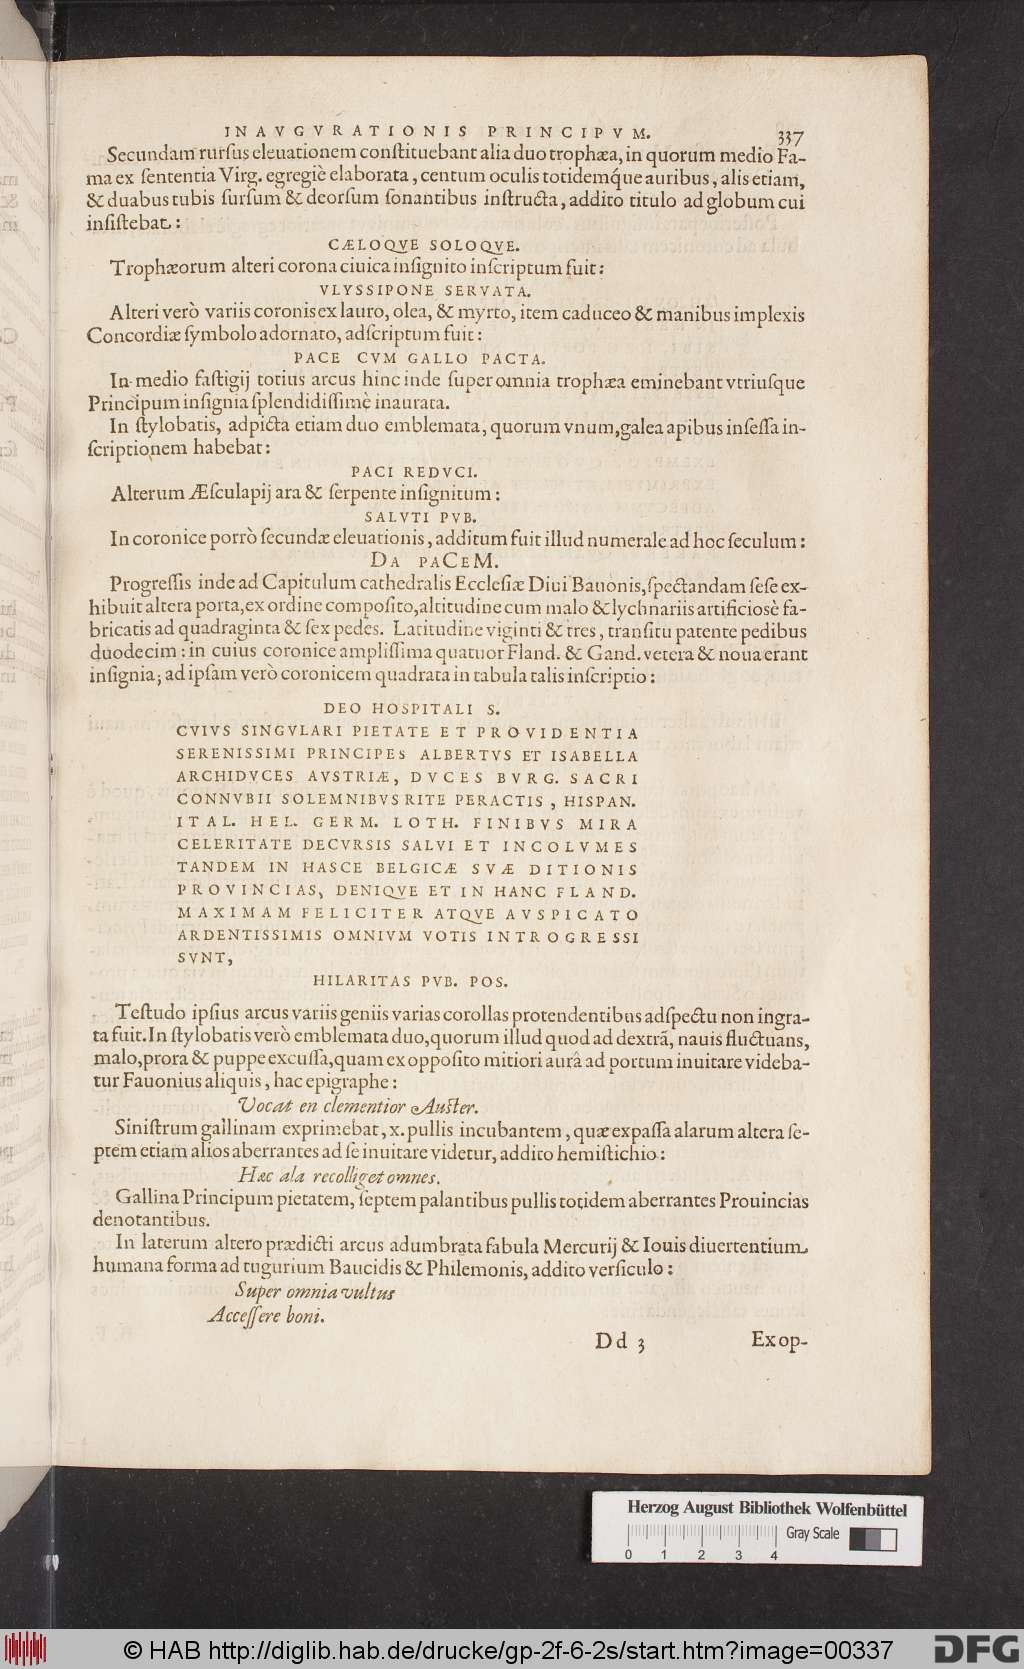 INAVGVRATIONIS PRINCIPVM. 337
Secundam rursus eleuationem constituebant alia duo trophæa, in quorum medio Fa-
ma ex sententia Virg. egregiè elaborata, centum oculis totidemq́ue auribus, alis etiam,
& duabus tubis sursum & deorsum sonantibus instructa, addito titulo ad globum cui
insistebat:
CÆLOQVE SOLOQVE.
Trophæorum alteri corona ciuica insignito inscriptum fuit:
VLYSSIPONE SERVATA.
Alteri verò variis coronis ex lauro, olea, & myrto, item caduceo & manibus implexis
Concordiæ symbolo adornato, adscriptum fuit:
PACE CVM GALLO PACTA.
In medio fastigij totius arcus hinc inde super omnia trophæa eminebant vtriusque
Principum insignia splendidissimè inaurata.
In stylobatis, adpicta etiam duo emblemata, quorum vnum, galea apibus insessa in-
scriptionem habebat:
PACI REDVCI.
Alterum Æsculapij ara & serpente insignitum:
SALVTI PVB.
In coronice porrò secundæ eleuationis, additum fuit illud numerale ad hoc seculum:
DA PACEM.
Progressis inde ad Capitulum cathedralis Ecclesiæ Diui Bauonis, spectandam sese ex-
hibuit altera porta, ex ordine composito, altitudine cum malo & lychnariis artificiosè fa-
bricatis ad quadraginta & sex pedes. Latitudine viginti & tres, transitu patente pedibus
duodecim: in cuius coronice amplissima quatuor Fland. & Gand. vetera & noua erant
insignia; ad ipsam verò coronicem quadrata in tabula talis inscriptio:
DEO HOSPITALI S.
CVIVS SINGVLARI PIETATE ET PROVIDENTIA
SERENISSIMI PRINCIPES ALBERTVS ET ISABELLA
ARCHIDVCES AVSTRIÆ, DVCES BVRG. SACRI
CONNVBII SOLEMNIBVS RITE PERACTIS, HISPAN.
ITAL. HEL. GERM. LOTH. FINIBVS MIRA
CELERITATE DECVRSIS SALVI ET INCOLVMES
TANDEM IN HASCE BELGICÆ SVÆ DITIONIS
PROVINCIAS, DENIQVE ET IN HANC FLAND.
MAXIMAM FELICITER ATQVE AVSPICATO
ARDENTISSIMIS OMNIVM VOTIS INTROGRESSI
SVNT,
HILARITAS PVB. POS.
Testudo ipsius arcus variis geniis varias corollas protendentibus adspectu non ingra-
ta fuit. In stylobatis verò emblemata duo, quorum illud quod ad dextrā, nauis fluctuans,
malo, prora & puppe excussa, quam ex opposito mitiori aurâ ad portum inuitare videba-
tur Fauonius aliquis, hac epigraphe:
Vocat en clementior Auster.
Sinistrum gallinam exprimebat, x. pullis incubantem, quæ expassa alarum altera se-
ptem etiam alios aberrantes ad se inuitare videtur, addito hemistichio:
Hæc ala recolliget omnes.
Gallina Principum pietatem, septem palantibus pullis totidem aberrantes Prouincias
denotantibus.
In laterum altero prædicti arcus adumbrata fabula Mercurij & Iouis diuertentium
humana forma ad tugurium Baucidis & Philemonis, addito versiculo:
Super omnia vultus
Accessere boni.
Dd 3 Ex op-
Herzog August Bibliothek Wolfenbüttel
Gray Scale
0 1 2 3 4
© HAB http://diglib.hab.de/drucke/gp-2f-6-2s/start.htm?image=00337
DFG